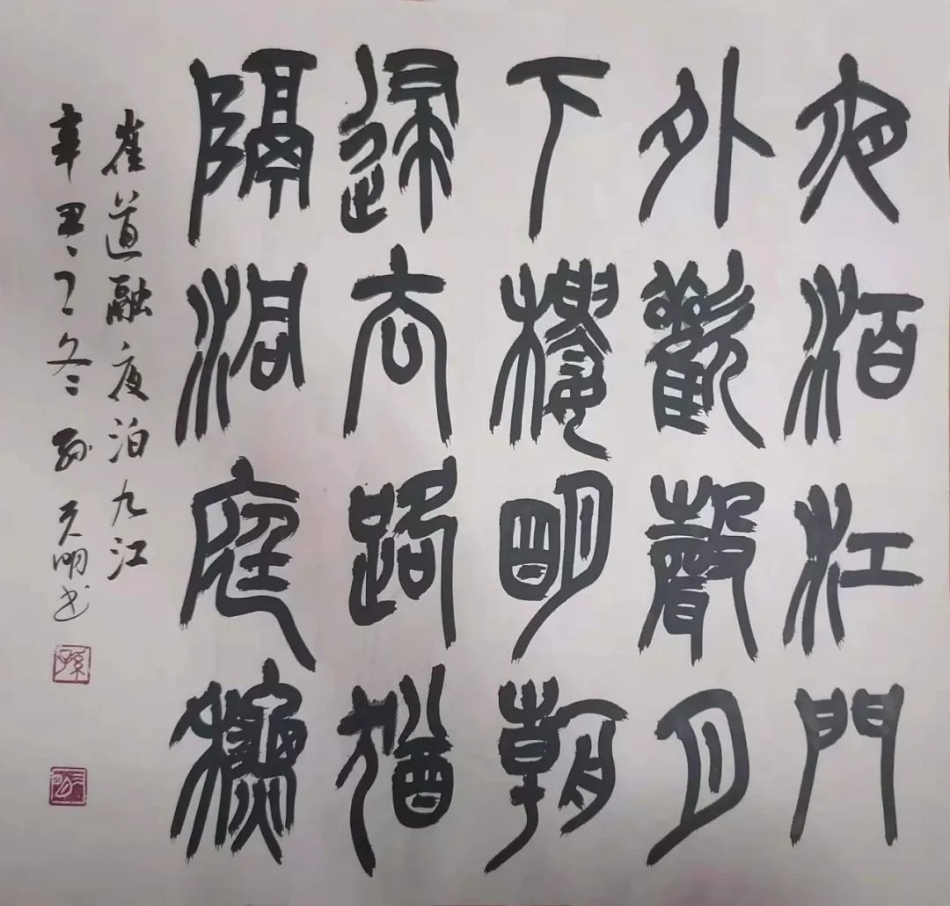 夜泊江門
外歡聲月
下樓明朝
歸去路猶
隔洞庭秋
崔道融夜泊九江
辛丑之冬孙天明书
孫